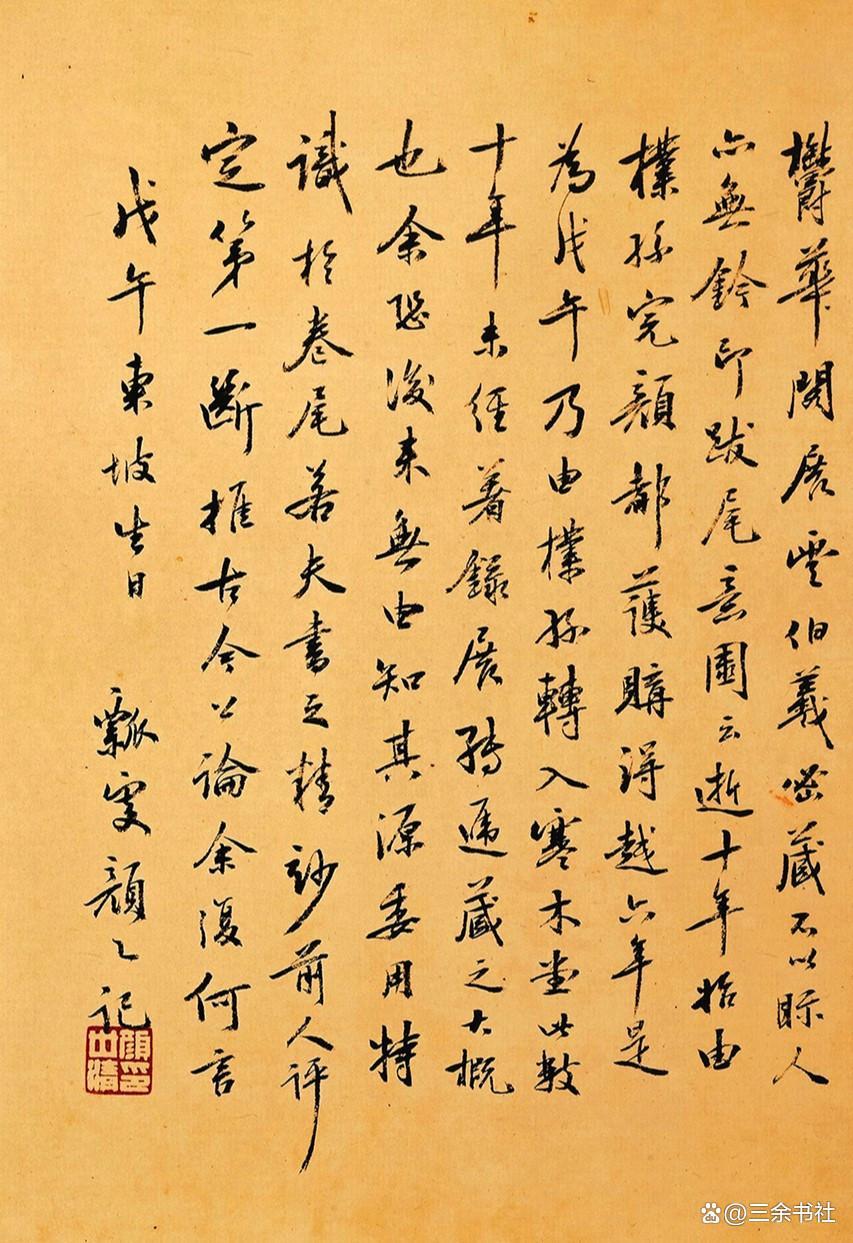 鬱華閣居雲伯羲密藏不以眎人
亦無鈐印跋尾意園云逝十年始由
樸孫完顏都護購得越六年是
為戊午乃由樸孫轉入寒木堂此數
十年未經著錄展轉遞藏之大概
也余恐後來無由知其源委用特
識於卷尾若夫書之精妙前人評
定第一斷推古今公論余復何言
戊午東坡生日 瓢叟顏之記
顏世清印
@三余书社